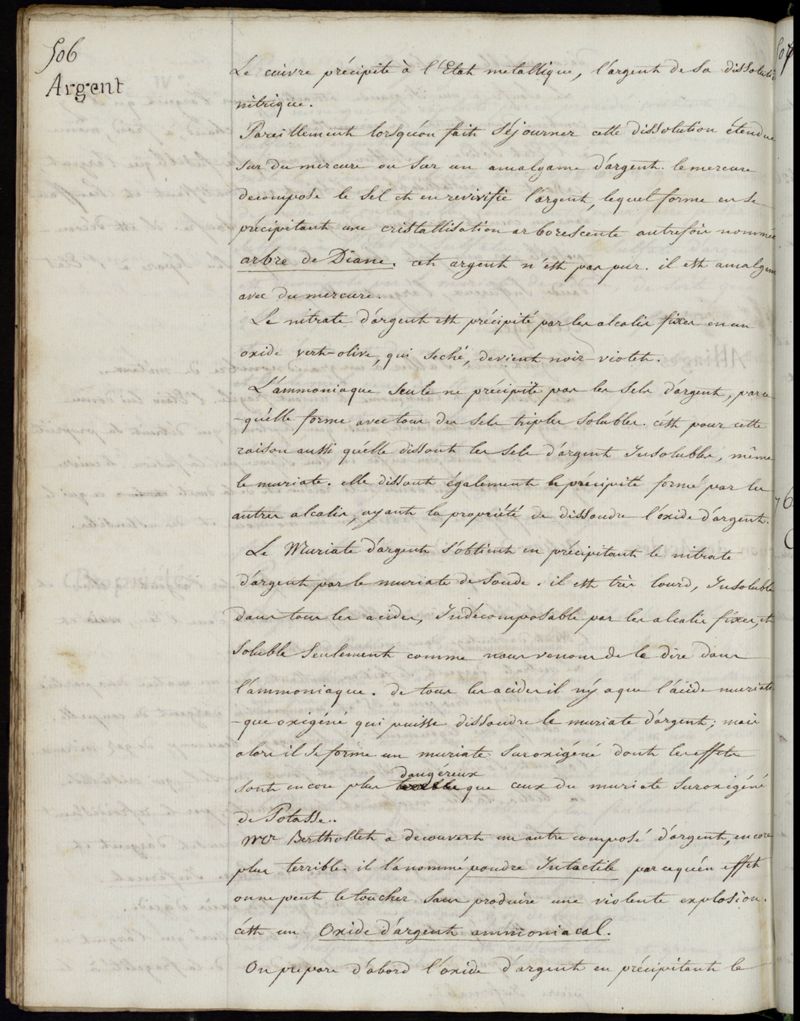 506
Argent
Le cuivre precipite à l'Etat metallique, l'argent de sa dissolution
nitrique.
Pareillement lorsqu'on fait Séjourner cette dissolution étendue
sur du mercure ou sur un amalgame d'argent. le mercure
decompose le sel et en revivifie l'argent, lequel forme en se
précipitant une cristallisation arborescente autrefois nommée
arbre de Diane. cet argent n'est pas pur. il est amalgamé
avec du mercure.
Le nitrate d'argent est précipité par les alcalis fixes en un
oxide vert-olive, qui seché, devient noir-violet.
L'ammoniaque seule ne précipite pas les sels d'argent, parce
-qu'elle forme avec tous des sels triples solubles. c'est pour cette
raison aussi qu'elle dissout les sels d'argent Insolubles, même
le muriate. elle dissout également le précipité formé par les
autres alcalis, ayant la propriété de dissoudre l'oxide d'argent.
Le Muriate d'argent s'obtient en précipitant le nitrate
d'argent par le muriate de Soude. il est très lourd, Insoluble
dans tous les acides, Indécomposable par les alcalis fixes, et
Soluble Seulement comme nous venons de le dire dans
l'ammoniaque. de tous les acides il n'y a que l'acide muriati
-que oxigéné qui puisse dissoudre le muriate d'argent; mais
alors il se forme un muriate Suroxigéné dont les effets
sont encore plus dangéreux que ceux du muriate Suroxigéné
de Potasse.
Mr Berthollet a decouvert un autre composé d'argent, encore
plus terrible. il l'a nommé poudre Intactile parcequ'en effet
on ne peut le toucher sans produire une violente explosion.
c'est un Oxide d'argent ammoniacal.
On prepare d'abord l'oxide d'argent en précipitant le